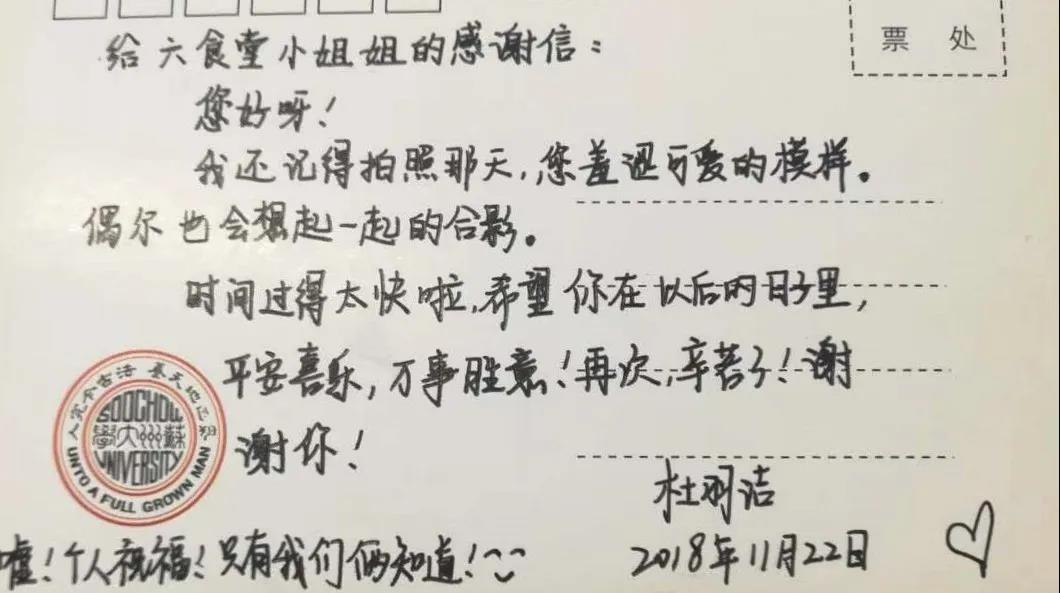 票 处
给六食堂小姐姐的感谢信：
您好呀！
我还记得拍照那天，您羞涩可爱的模样。
偶尔也会想起一起的合影。
时间过得太快啦，希望你在以后的日子里，
平安喜乐，万事胜意！再次，辛苦了！谢
谢你！
杜羽洁
2018年11月22日
嘘！个人祝福！只有我们俩知道！
養天地正氣 法古今完人
SOOCHOW
蘇州大學
UNIVERSITY
UNTO A FULL GROWN MAN